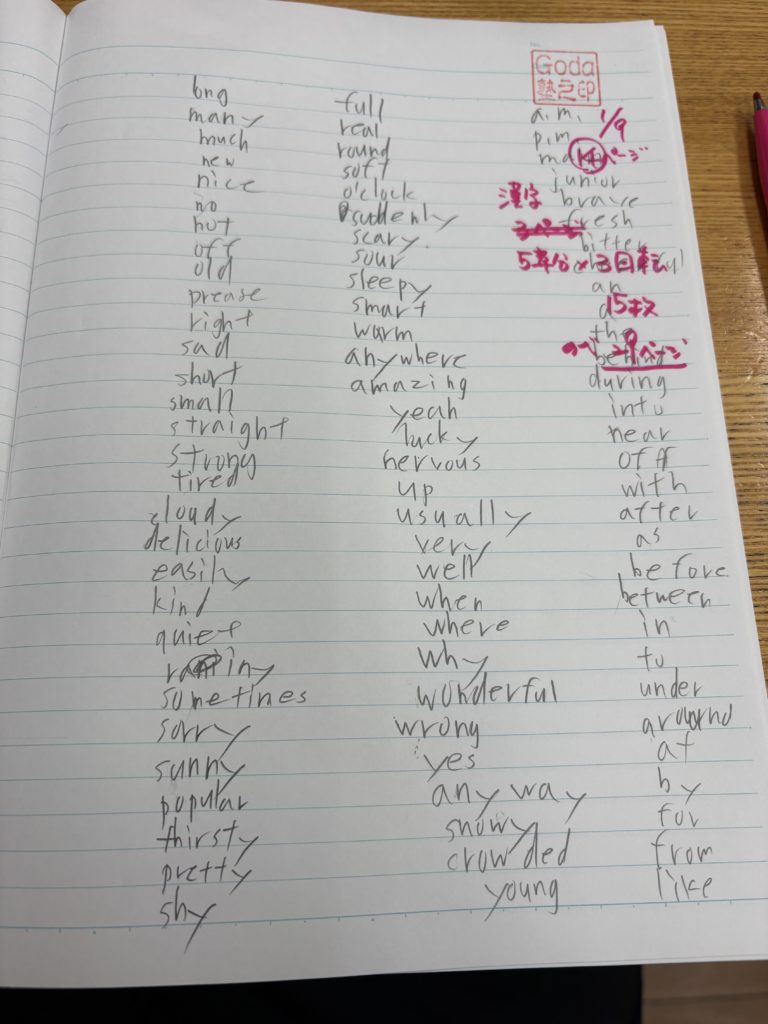 long
many
much
new
nice
no
hot
off
old
prease
right
sad
short
small
straight
strong
tired
cloudy
delicious
easily
kind
quiet
rainy
sometimes
sorry
sunny
popular
thirsty
pretty
shy
full
real
round
soft
o'clock
suddenly
scary.
sour
sleepy
smart
warm
anywhere
amazing
yeah
lucky
nervous
up
usually
very
well
when
where
why
wonderful
wrong
yes
any way
snowy
crowded
young
Goda
塾之印
a.m.
1/9
p.m
14ページ
junior
漢字
brave
fresh
3ページ
bitter
5章分×3回転
an
a
15枚
the
behind
during
into
near
off
with
after
as
before
between
in
to
under
around
at
by
for
from
like